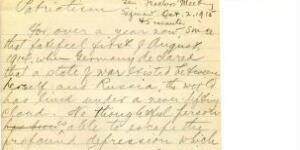 Patriotism
Meeting
Signed Oct. 2, 1915
45 minutes
For over a year now, since
that fateful first of August,
1914, when Germany declared
that a state of war existed between
herself and Russia, the world
has lived under a never lifting
cloud. No thoughtful person
able to escape the
profound depression which